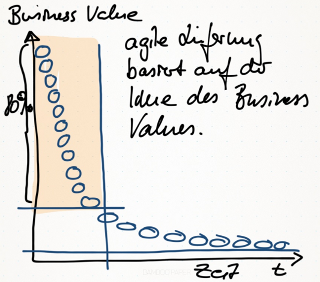 Business Value
agile Lieferung
basiert auf der
Idee des Business
Values.
80%
Zeit t